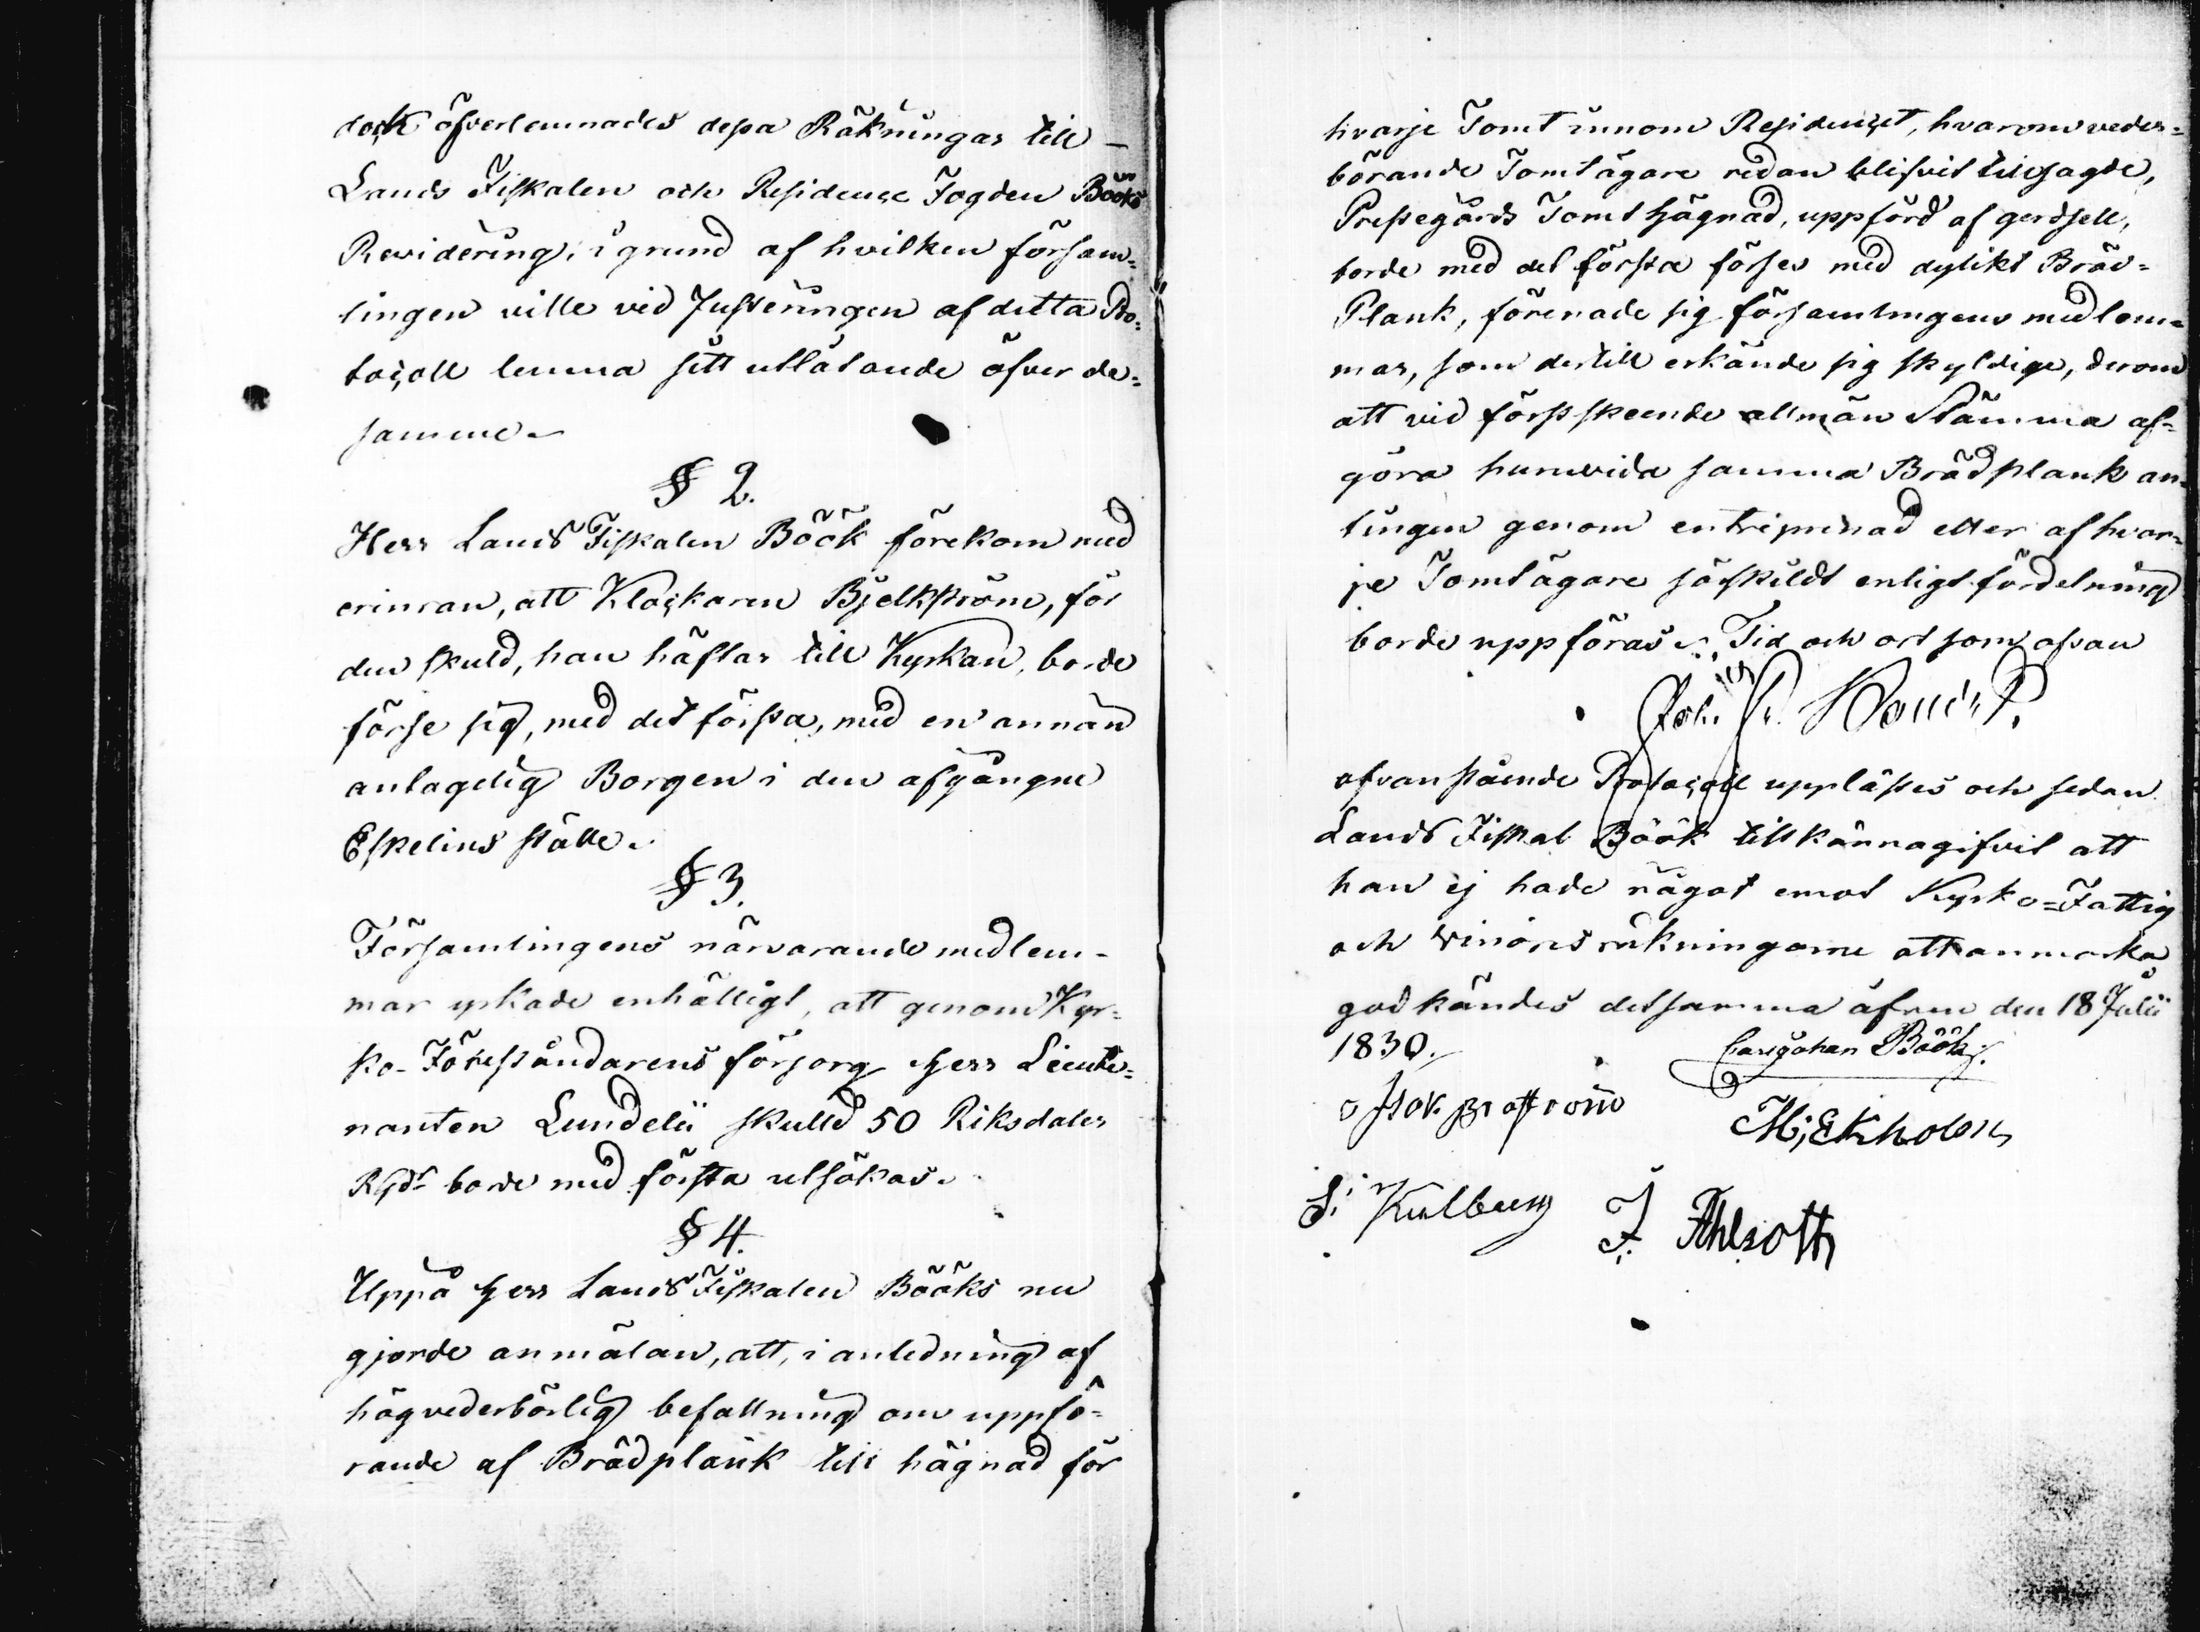 dock öfverlemnades dessa Räkningar till
Lands Fiskalen och Residence Fogden Bööks
Revidering, i grund af hvilken försam=
lingen ville vid Justeringen af detta Pro=
tocoll lemna sitt utlåtande öfver de=
samme.
§ 2.
Herr Lands Fiskalen Böök förekom med
erinran, att Klockaren Bjelkström, för
den skuld, han häftar till Kyrkan, borde
förse sig, med det första, med en annan
antagelig Borgen i den afgångne
Eskelins ställe.
§ 3.
Församlingens närvarande medlem-
mar yrkade enhälligt, att genom Kyr=
ko-Föreståndarens försorg Herr Lieute=
nanten Lundelii skuld 50 Riksdaler
RGds borde med första utsökas.
§ 4.
Uppå Herr Lands Fiskalen Bööks nu
gjorde anmälan, att, i anledning af
högvederbörlig befallning om uppfö=
rande af Brädplank till hägnad för
hvarje Tomt innom Residencet, hvarom veder=
börande Tomtägare redan blifvit tillsagde,
Prestegårds Tomt hägnad, uppförd af gerdsell,
borde med det första förses med dylikt Bräd=
Plank, förenade sig församlingens medlem=
mar, som dertill erkände sig skyldige, derom
att vid förstskeende allmän Stämma af=
göra huruvida samma Brädplank an=
tingen genom entreprenad eller af hvar=
je Tomtägare särskildt enligt fördelning
borde uppföras. Tid och ort som ofvan
Joh. Fr.
ofvanstående Protocoll upplästes och sedan
Lands Fiskal Böök tillkännagifvit att
han ej hade något emot Kyrko=Fattig
och räkningarne att anmärka
godkändes detsamma äfven den 18 Julii
1830.
Carl Johan Böök.
Isak Broström
M; Ekholm
S: Kulberg
F. Ahlroth